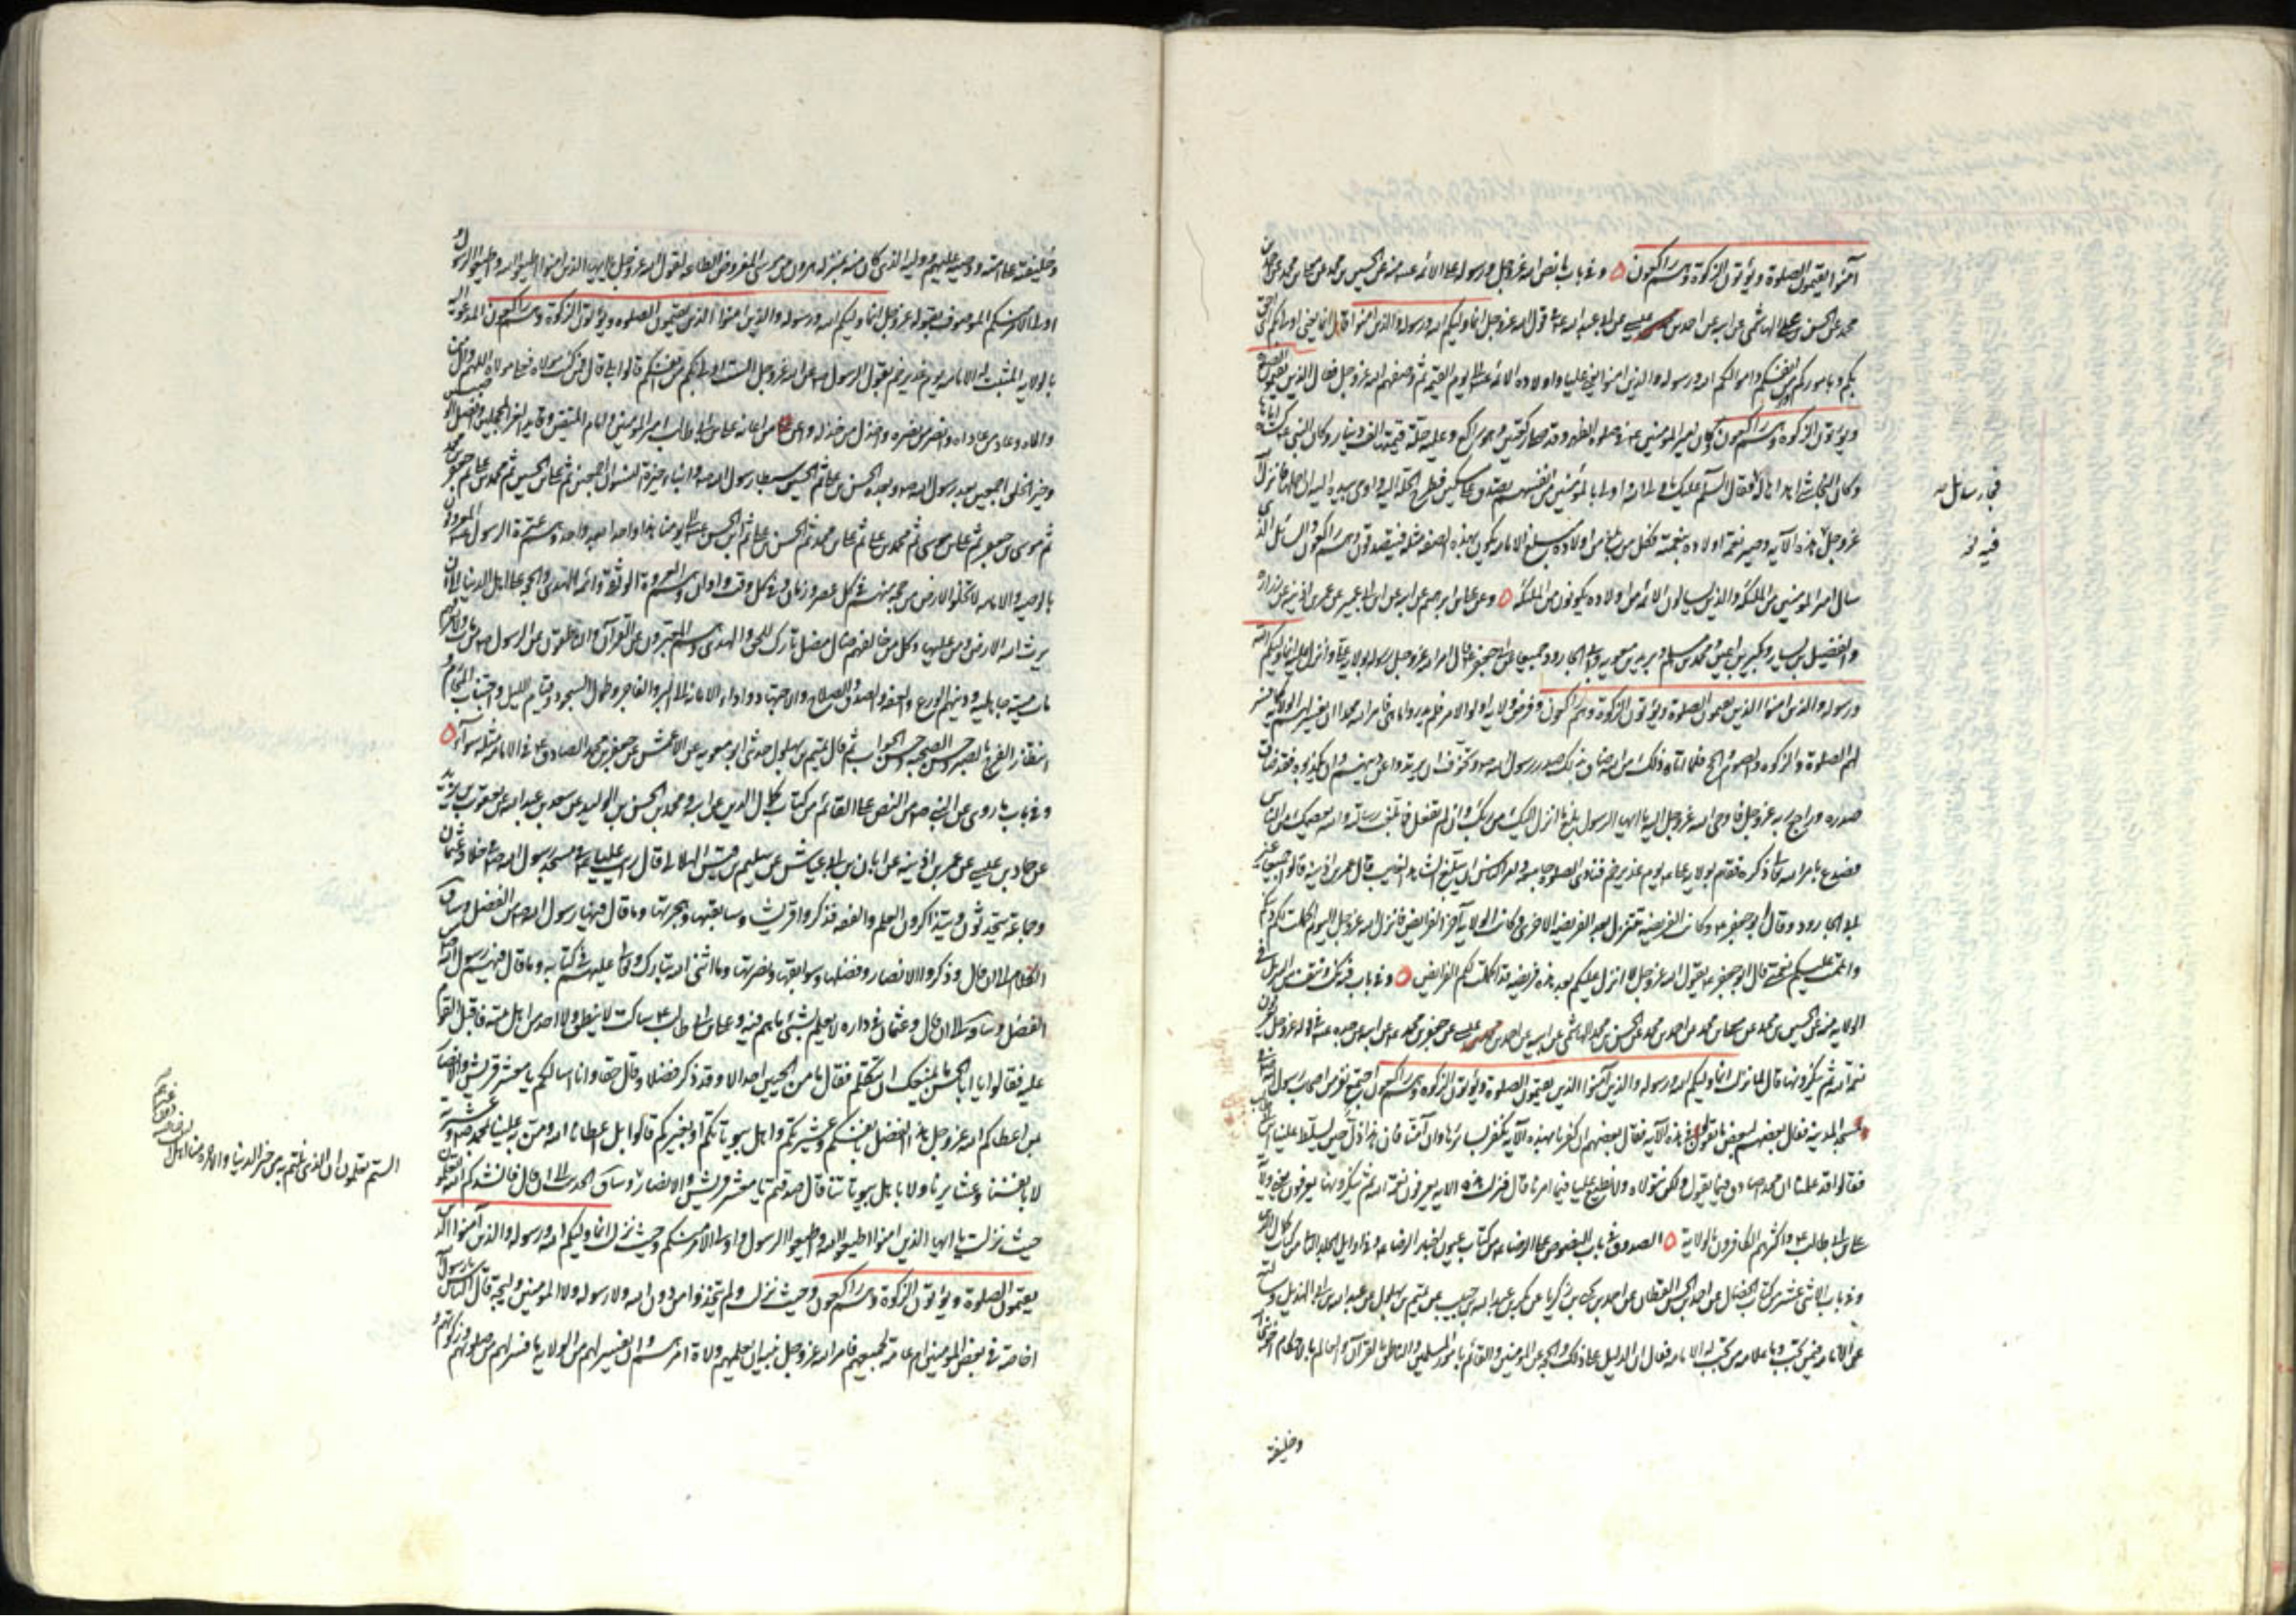 آمنوا يقيمون الصلوة ويؤتون الزكوة وهم راكعون ه وفي باب ما نص الله عز وجل ورسوله على الائمة عنه عن الحسين بن محمد عن معلى بن محمد عن
محمد عن الحسن بن محمد الهاشمي عن ابيه عن احمد بن عيسى عن ابي عبد الله ع في قول الله عز وجل انما وليكم الله ورسوله والذين امنوا قال انما يعني اولى بكم اي احق
بكم وباموركم من انفسكم واموالكم الله ورسوله والذين امنوا يعني عليا واولاده الائمة ع الى يوم القيمة ثم وصفهم الله عز وجل فقال الذين يقيمون الصلوة
ويؤتون الزكوة وهم راكعون وكان امير المؤمنين ع في صلوة الظهر وقد صلى ركعتين وهو راكع وعليه حلة قيمتها الف دينار وكان النبي كساه اياها
وكان النجاشي اهداها له فقال السلام عليك يا ولي الله واولى بالمؤمنين من انفسهم تصدق على مسكين فطرح الحلة اليه واومى بيده اليه ان احملها فانزل الله
عز وجل فيه هذه الآية وصير نعمة اولاده بنعمته فكل من بلغ من اولاده مبلغ الامامة يكون بهذه الصفة مثله فيتصدقون وهم راكعون والسائل الذي
سال امير المؤمنين من الملئكة والذين يسالون الائمة من اولاده يكونون من الملئكة ه وعن علي بن ابرهيم عن ابيه عن ابن ابي عمير عن عمر بن اذينة عن زرارة
والفضيل بن يسار وبكير بن اعين ومحمد بن مسلم وبريد بن معوية وابي الجارود جميعا عن ابي جعفر ع قال امر الله عز وجل رسوله بولاية علي وانزل عليه انما وليكم الله
ورسوله والذين امنوا الذين يقيمون الصلوة ويؤتون الزكوة وهم راكعون وفرض ولاية اولوا الامر فلم يدروا ما هي فامر الله محمدا ان يفسر لهم الولاية كما فسر
لهم الصلوة والزكوة والصوم والحج فلما اتاه ذلك من الله ضاق بذلك صدر رسول الله ص وتخوف ان يرتدوا عن دينهم وان يكذبوه فضاق
صدره وراجع ربه عز وجل فاوحى الله عز وجل اليه يا ايها الرسول بلغ ما انزل اليك من ربك وان لم تفعل فما بلغت رسالته والله يعصمك من الناس
فصدع بامر الله تعالى ذكره فقام بولاية علي ع يوم غدير خم فنادى الصلوة جامعة وامر الناس ان يبلغ الشاهد الغايب قال عمر بن اذينة قالوا جميعا غير
ابي الجارود وقال ابو جعفر ع وكانت الفريضة تنزل بعد الفريضة الاخرى وكانت الولاية آخر الفرايض فانزل الله عز وجل اليوم اكملت لكم دينكم
واتممت عليكم نعمتي قال ابو جعفر ع يقول الله عز وجل لا انزل عليكم بعد هذه فريضة قد اكملت لكم الفرايض ه وفي باب فيه نكت ونتف من التنزيل في
الولاية منه عن الحسين بن محمد عن معلى بن محمد عن احمد بن محمد عن الحسن بن محمد الهاشمي عن ابيه عن احمد بن عيسى عن جعفر بن محمد عن ابيه عن جده ع في قوله عز وجل يعرفون
نعمة الله ثم ينكرونها قال لما نزلت انما وليكم الله ورسوله والذين آمنوا الذين يقيمون الصلوة ويؤتون الزكوة وهم راكعون اجتمع نفر من اصحاب رسول الله
في مسجد المدينة فقال بعضهم لبعض ما تقولون في هذه الآية فقال بعضهم ان كفرنا بهذه الآية نكفر بسائرها وان آمنا فان هذا ذل حين يسلط علينا ابن
فقالوا قد علمنا ان محمد صادق فيما يقول ولكن نتولاه ولا نطيع عليا فيما امرنا قال فنزلت هذه الاية يعرفون نعمة الله ثم ينكرونها يعرفون يعني ولاية
علي بن ابي طالب ع واكثرهم الكافرون بالولاية ه الصدوق في باب النصوص على الرضا ع من كتاب عيون اخبار الرضا ع وفي اوايل المجلد الثاني من كتاب كمال الدين
وفي باب الاثني عشر من كتاب الخصال عن احمد بن الحسن القطان عن احمد بن يحيى بن زكريا عن بكر بن عبد الله بن حبيب عن تميم بن بهلول عن عبد الله بن ابي الهذيل وسالته
عن الامامة فيمن تجب وما علامة من تجب له الامامة فقال ان الدليل على ذلك والحجة على المؤمنين والقائم بامور المسلمين والناطق بالقرآن والعالم بالاحكام اخو نبي الله
وخليفته
فجاء سائل صه
فيه خ
وخليفته على امته ووصيه عليهم ووليه الذي كان منه بمنزلة هرون من موسى المفروض الطاعة لقول الله عز وجل يا ايها الذين امنوا اطيعوا الله واطيعوا الرسول و
اولي الامر منكم الموصوف بقوله عز وجل انما وليكم الله ورسوله والذين امنوا الذين يقيمون الصلوة ويؤتون الزكوة وهم راكعون المدعو اليه
بالولاية المثبت له الامامة يوم غدير خم بقول الرسول ص عن الله عز وجل الست اولى بكم من انفسكم قالوا بلى قال فمن كنت مولاه فعلي مولاه اللهم وال من
والاه وعاد من عاداه وانصر من نصره واخذل من خذله واعن من اعانه علي بن ابي طالب امير المؤمنين وامام المتقين وقايد الغر المحجلين وافضل الوصيين
وخير الخلق اجمعين بعد رسول الله ص وبعده الحسن بن علي ثم الحسين سبطا رسول الله ص وابناء خيرة النسوان اجمعين ثم علي بن الحسين ثم محمد بن علي ثم جعفر بن محمد
ثم موسى بن جعفر ثم علي بن موسى ثم محمد بن علي ثم علي بن محمد ثم الحسن بن علي ثم ابن الحسن ع الى يومنا هذا واحدا بعد واحد وهم عترة الرسول ص المعروفون
بالوصية والامامة لا تخلوا الارض من حجة منهم في كل عصر وزمان وفي كل وقت واوان وهم العروة الوثقى وائمة الهدى والحجة على اهل الدنيا الى ان
يرث الله الارض ومن عليها وكل من خالفهم ضال مضل تارك للحق والهدى وهم المعبرون عن القرآن والناطقون عن الرسول ص من مات ولا يعرفهم
مات ميتة جاهلية ودينهم الورع والعفة والصدق والصلاح والاجتهاد واداء الامانة الى البر والفاجر وطول السجود وقيام الليل واجتناب المحارم و
انتظار الفرج بالصبر وحسن الصحبة وحسن الجوار ثم قال تميم بن بهلول حدثني ابو معوية عن الاعمش عن جعفر بن محمد الصادق ع في الامامة مثله سواء ه
وفي باب ما روي عن النبي ص من النص على القائم من كتاب كمال الدين عن ابيه ومحمد بن الحسن بن الوليد عن سعد بن عبد الله عن يعقوب بن يزيد
عن حماد بن عيسى عن عمر بن اذينة عن ابان بن ابي عياش عن سليم بن قيس الهلالي قال رايت عليا ع في مسجد رسول الله ص في خلافة عثمان
وجماعة يتحدثون ويتذاكرون العلم والفقه فذكروا قريشا وسابقتها وهجرتها وما قال فيها رسول الله ص من الفضل وساق
الكلام الى ان قال وذكروا الانصار وفضلها وسوابقها ونصرتها وما اثنى الله تبارك وتعالى عليهم في كتابه وما قال فيهم رسول الله ص من
الفضل وساق الى ان قال وعثمان في داره لا يعلم بشئ مما هم فيه وعلي بن ابي طالب ع ساكت لا ينطق ولا احد من اهل بيته فاقبل القوم
عليه فقالوا يا ابا الحسن ما يمنعك ان تتكلم فقال ما من الحيين احد الا وقد ذكر فضلا وقال حقا وانا اسالكم يا معشر قريش والانصار
بمن اعطاكم الله عز وجل هذا الفضل بانفسكم وعشيرتكم واهل بيوتاتكم او بغيركم قالوا بل اعطانا الله ومن به علينا بمحمد ص وعشيرته
لا بانفسنا وعشايرنا ولا باهل بيوتاتنا قال صدقتم يا معشر قريش والانصار وساق الحديث الى ان قال فانشدكم الله اتعلمون
حيث نزلت يا ايها الذين امنوا اطيعوا الله واطيعوا الرسول واولي الامر منكم وحيث نزلت انما وليكم الله ورسوله والذين آمنوا الذين
يقيمون الصلوة ويؤتون الزكوة وهم راكعون وحيث نزلت ولم يتخذوا من دون الله ولا رسوله ولا المؤمنين وليجة قال الناس يا رسول الله
اخاصة في بعض المؤمنين ام عامة لجميعهم فامر الله عز وجل نبيه ان يعلمهم ولاة امرهم وان يفسر لهم من الولاية ما فسر لهم من صلوتهم وزكوتهم و
الستم تعلمون ان الذي نلتم به من خير الدنيا والاخرة منا اهل